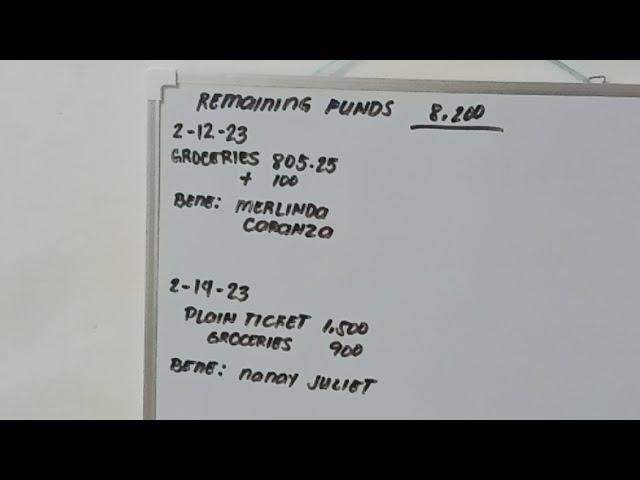 REMAINING FUNDS 8.200
2-12-23
GROCERIES 805.25
+ 100
BENE: MERLINDA
CARANZA
2-19-23
PLAIN TICKET 1,500
GROCERIES 900
BENE: NANAY JULIET